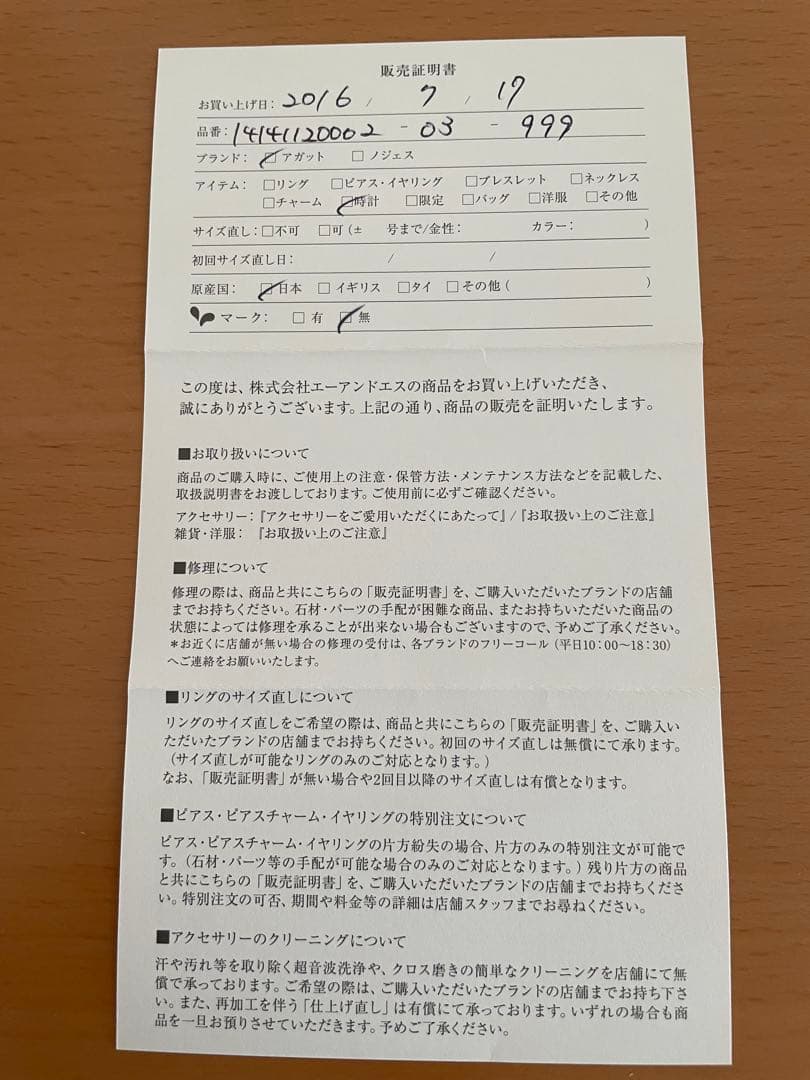 販売証明書
お買い上げ日: 2016 / 7 / 17
品番: 14141120002 - 03 - 999
ブランド: ☑アガット □ノジェス
アイテム: □リング □ピアス・イヤリング □ブレスレット □ネックレス
□チャーム ☑時計 □限定 □バッグ □洋服 □その他
サイズ直し: □不可 □可(± 号まで/金性: カラー: )
初回サイズ直し日: / /
原産国: ☑日本 □イギリス □タイ □その他( )
マーク: □有 ☑無
この度は、株式会社エーアンドエスの商品をお買い上げいただき、
誠にありがとうございます。上記の通り、商品の販売を証明いたします。
■お取り扱いについて
商品のご購入時に、ご使用上の注意・保管方法・メンテナンス方法などを記載した、
取扱説明書をお渡ししております。ご使用前に必ずご確認ください。
アクセサリー:『アクセサリーをご愛用いただくにあたって』/『お取扱い上のご注意』
雑貨・洋服: 『お取扱い上のご注意』
■修理について
修理の際は、商品と共にこちらの「販売証明書」を、ご購入いただいたブランドの店舗
までお持ちください。石材・パーツの手配が困難な商品、またお持ちいただいた商品の
状態によっては修理を承ることが出来ない場合もございますので、予めご了承ください。
*お近くに店舗が無い場合の修理の受付は、各ブランドのフリーコール(平日10:00〜18:30)
へご連絡をお願いいたします。
■リングのサイズ直しについて
リングのサイズ直しをご希望の際は、商品と共にこちらの「販売証明書」を、ご購入い
ただいたブランドの店舗までお持ちください。初回のサイズ直しは無償にて承ります。
(サイズ直しが可能なリングのみのご対応となります。)
なお、「販売証明書」が無い場合や2回目以降のサイズ直しは有償となります。
■ピアス・ピアスチャーム・イヤリングの特別注文について
ピアス・ピアスチャーム・イヤリングの片方紛失の場合、片方のみの特別注文が可能で
す。(石材・パーツ等の手配が可能な場合のみのご対応となります。)残り片方の商品
と共にこちらの「販売証明書」を、ご購入いただいたブランドの店舗までお持ちくださ
い。特別注文の可否、期間や料金等の詳細は店舗スタッフまでお尋ねください。
■アクセサリーのクリーニングについて
汗や汚れ等を取り除く超音波洗浄や、クロス磨きの簡単なクリーニングを店舗にて無
償で承っております。ご希望の際は、ご購入いただいたブランドの店舗までお持ち下さ
い。また、再加工を伴う「仕上げ直し」は有償にて承っております。いずれの場合も商
品を一旦お預りさせていただきます。予めご了承ください。